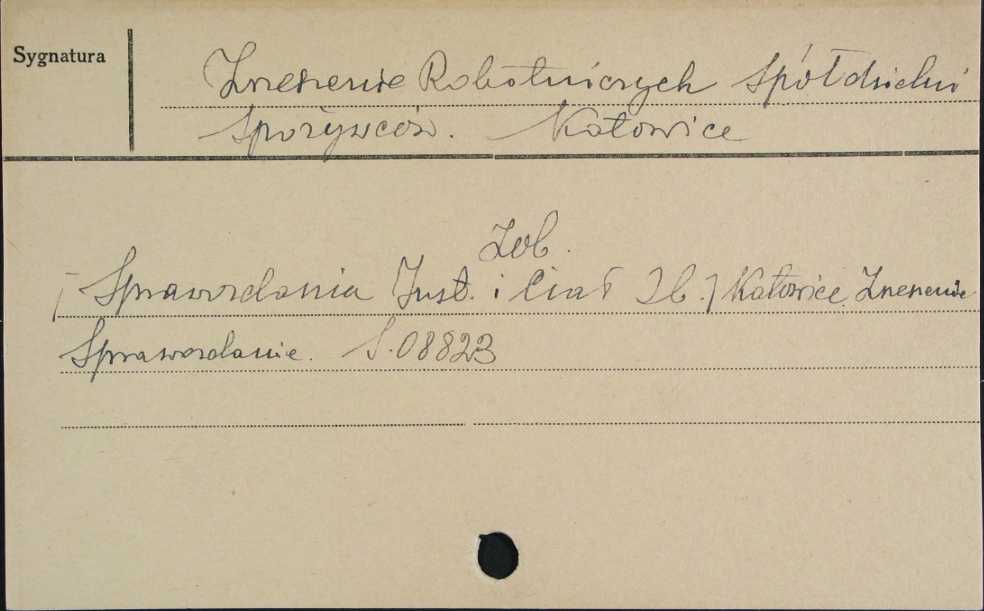 Sygnatura
Zrzeszenie Robotniczych Spółdzielni
Spożywców. Katowice
Zob.
[Sprawozdania Inst. i Ciał Zb.] Katowice Zrzeszenie
Sprawozdanie. S.08823